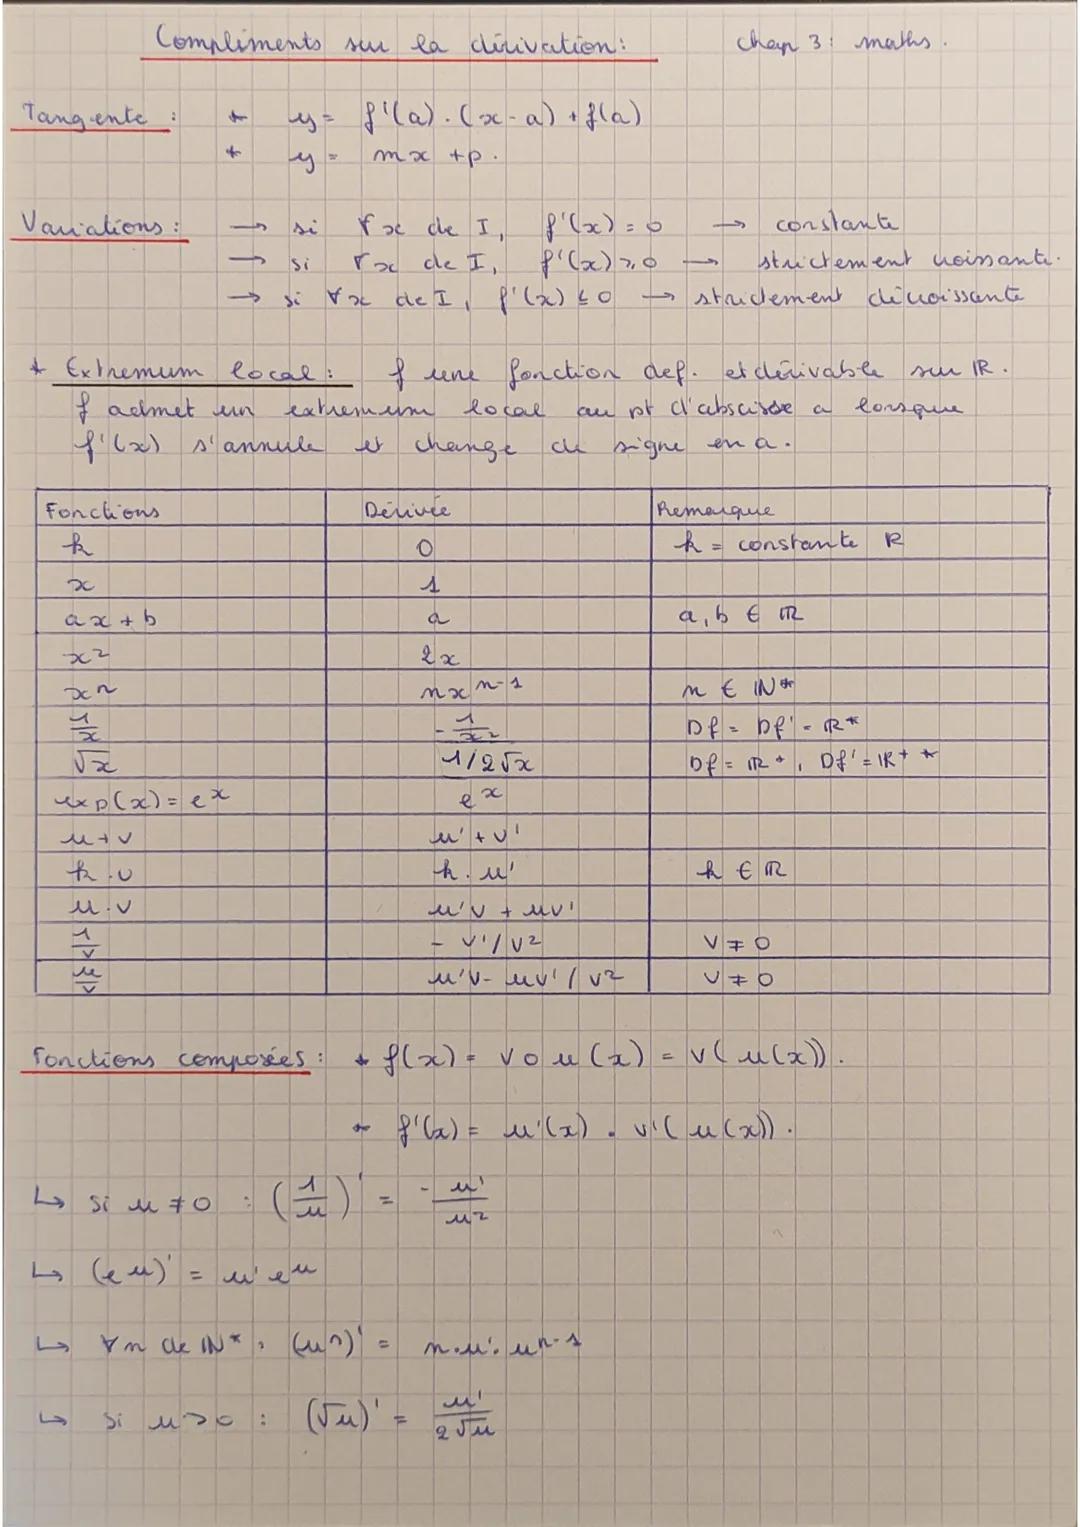 Compléments sur la dérivation : chap 3 : maths.
Tangente : * y = f'(a).(x-a) + f(a)
* y = mx + p.
Variations : → si ∀x de I, f'(x) = 0 → constante
→ si ∀x de I, f'(x) ⩾ 0 → strictement croissante.
→ si ∀x de I, f'(x) ⩽ 0 → strictement décroissante
* Extremum local : f une fonction def. et dérivable sur ℝ.
f admet un extremum local au pt d'abscisse a lorsque
f'(x) s'annule et change de signe en a.
Fonctions Dérivée Remarque
k 0 k = constante ℝ
x 1
ax + b a a, b ∈ ℝ
x² 2x
xⁿ nxⁿ⁻¹ n ∈ ℕ*
1/x -1/x² Df = Df' = ℝ*
√x 1/2√x Df = ℝ⁺, Df' = ℝ⁺*
exp(x) = eˣ eˣ
u + v u' + v'
k.u k.u' k ∈ ℝ
u.v u'v + uv'
1/v - v'/v² v ≠ 0
u/v u'v - uv' / v² v ≠ 0
Fonctions composées : * f(x) = v o u (x) = v(u(x)).
* f'(x) = u'(x) . v'(u(x)).
↳ si u ≠ 0 : (1/u)' = - u'/u²
↳ (eᵘ)' = u'eᵘ
↳ ∀n de ℕ*, (uⁿ)' = n.u'.uⁿ⁻¹
↳ si u > 0 : (√u)' = u'/2√u